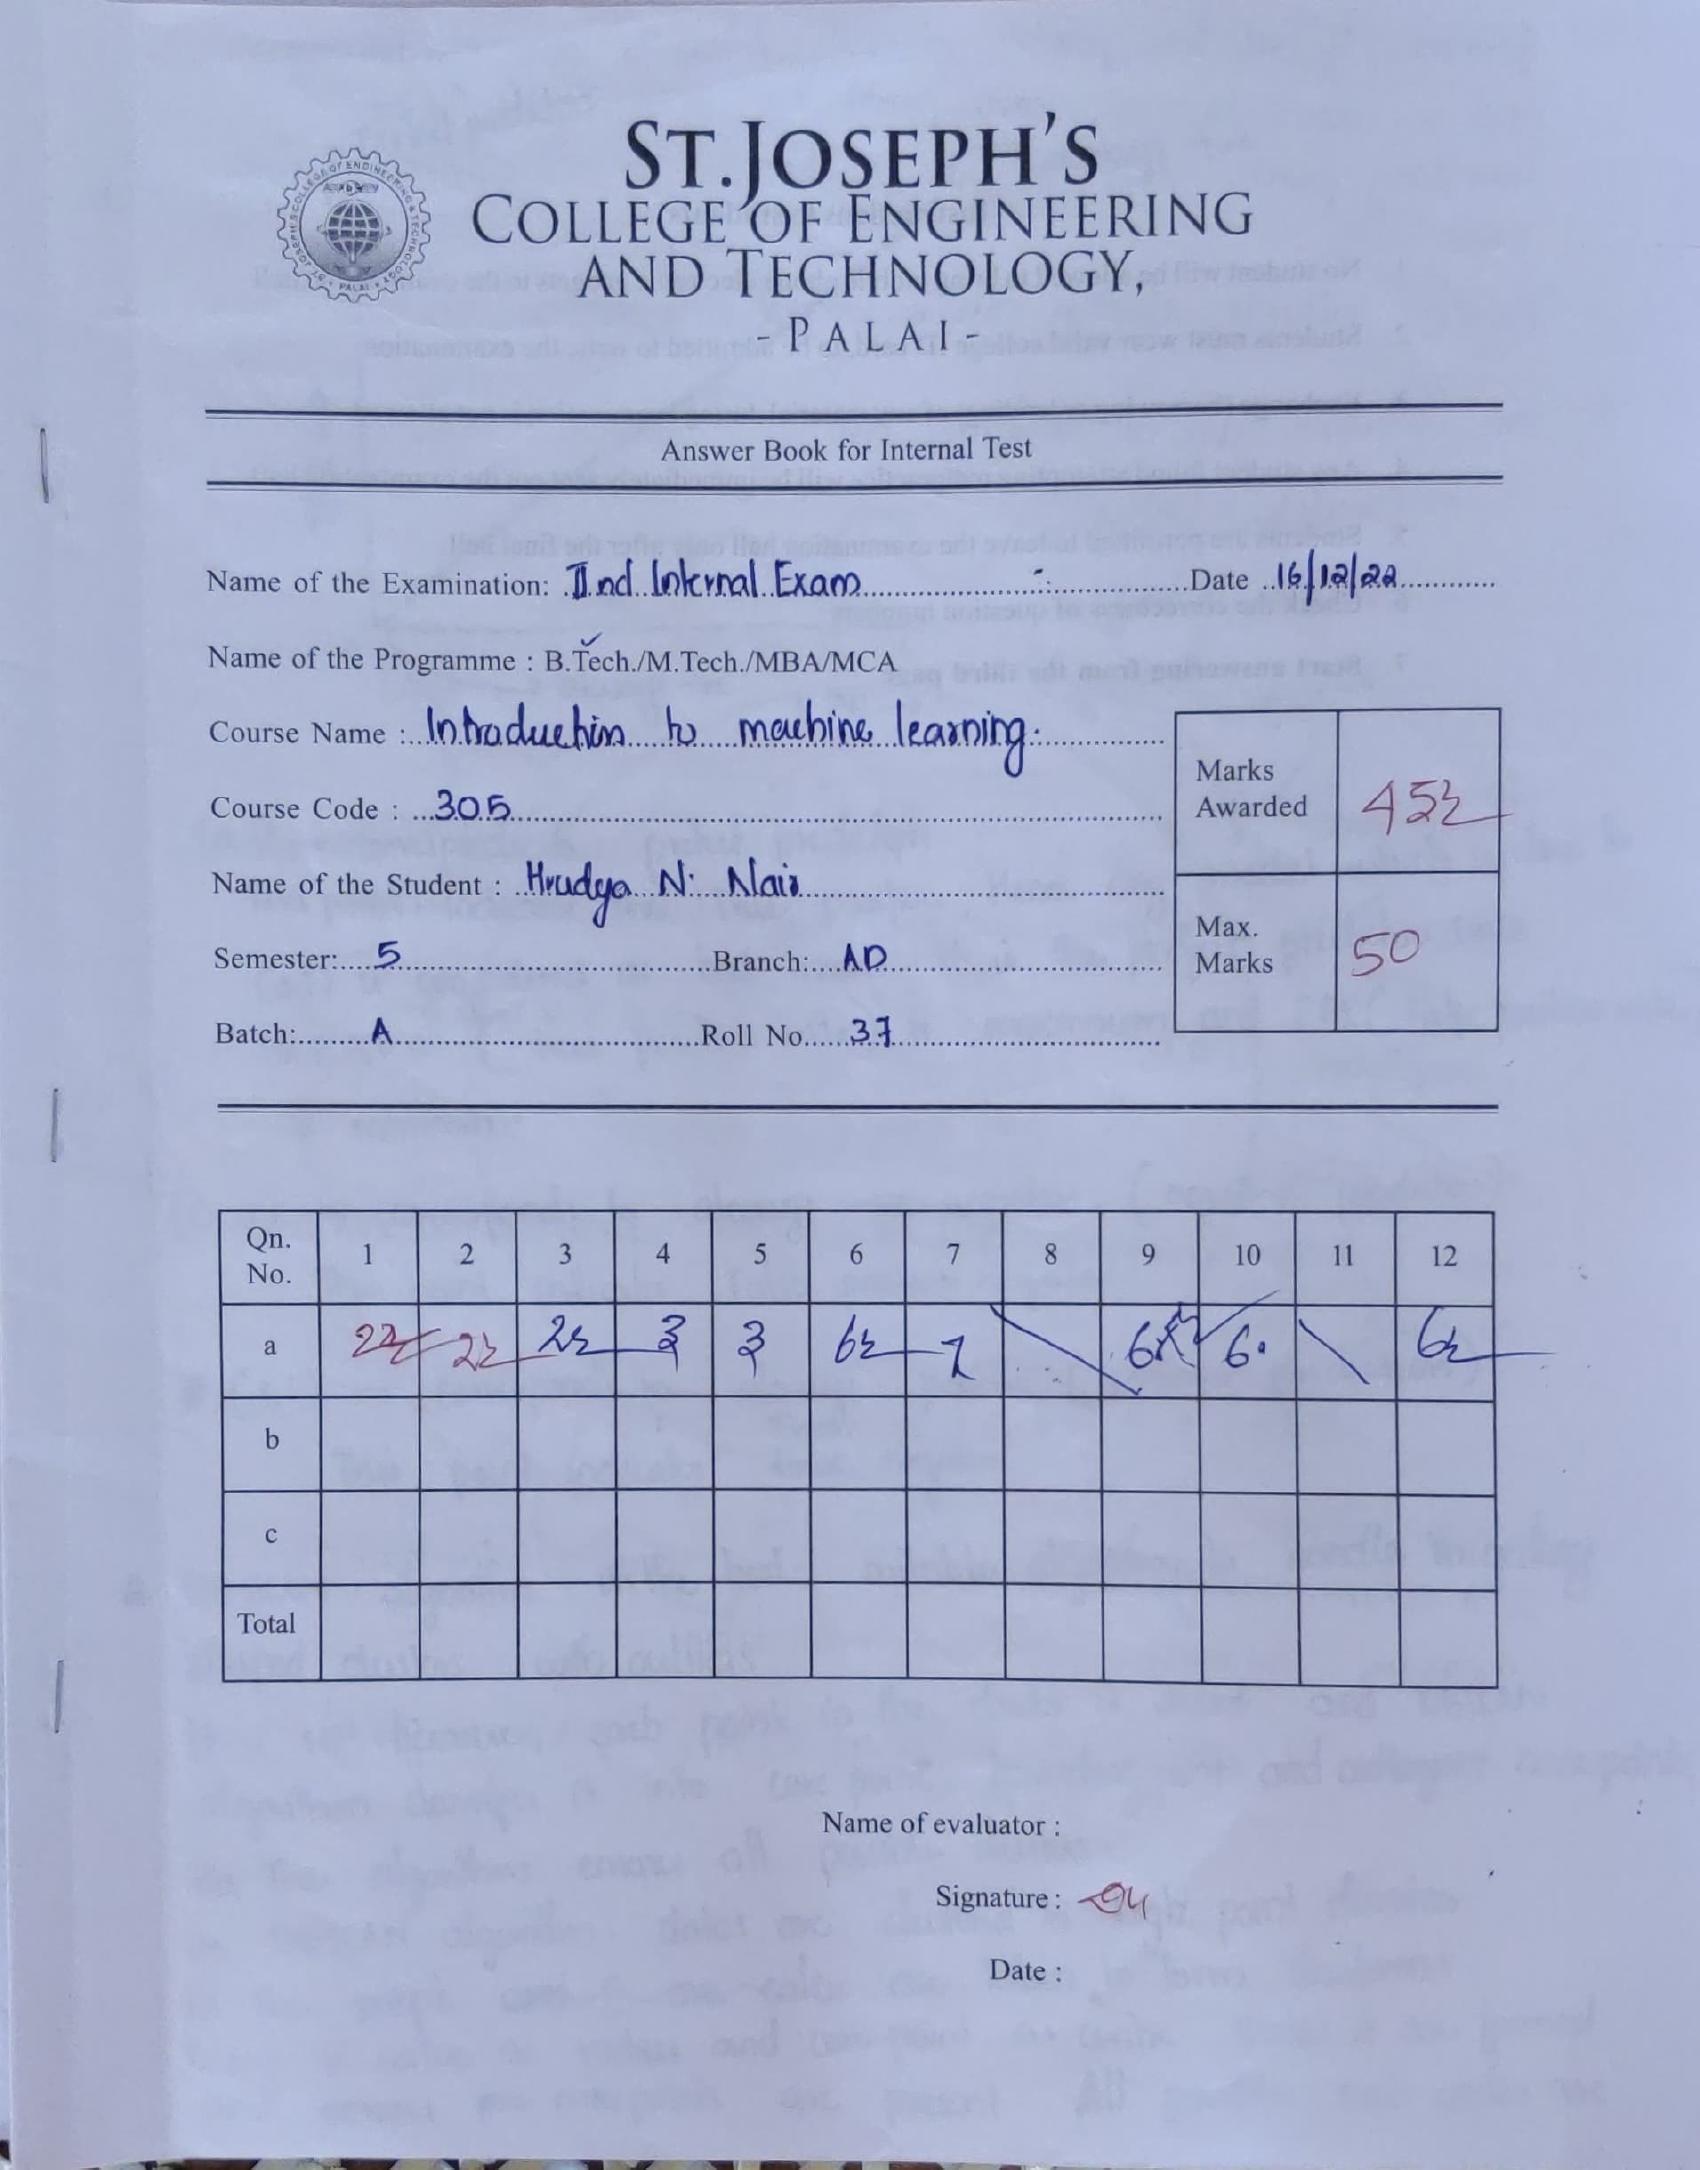 ST.JOSEPH'S
COLLEGE OF ENGINEERING
AND TECHNOLOGY,
- PALAI -
Answer Book for Internal Test
Name of the Examination: IInd Internal Exam Date 16/12/22
Name of the Programme : B.Tech./M.Tech./MBA/MCA
Course Name : Introduction to machine learning.
Course Code : 305
Name of the Student : Hrudya N. Nair
Semester: 5 Branch: AD
Batch: A Roll No. 37
Marks Awarded 45½
Max. Marks 50
Qn. No. 1 2 3 4 5 6 7 8 9 10 11 12
a 2½ 2½ 2½ 3 3 6½ 7 6 6½
b
c
Total
Name of evaluator :
Signature :
Date :